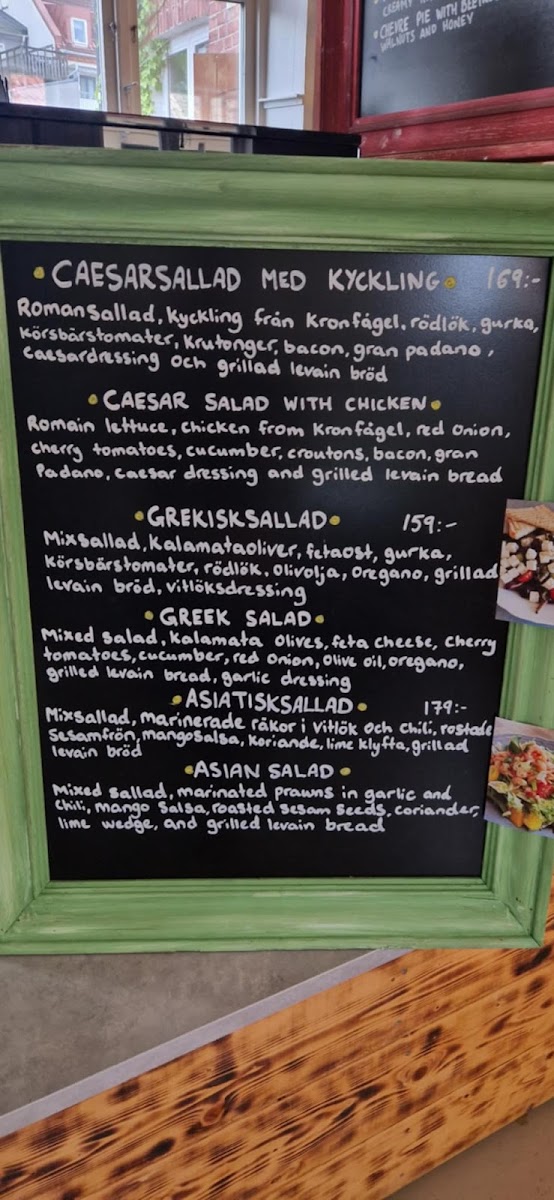 CREAMY
• CHEVRE PIE WITH BEET
WALNUTS AND HONEY
• CAESARSALLAD MED KYCKLING • 169:-
Romansallad, kyckling från Kronfågel, rödlök, gurka,
Körsbärstomater, Krutonger, bacon, gran padano,
Caesardressing och grillad levain bröd
• CAESAR SALAD WITH CHICKEN •
Romain lettuce, chicken from Kronfågel, red onion,
cherry tomatoes, cucumber, croutons, bacon, gran
Padano, caesar dressing and grilled levain bread
• GREKISKSALLAD • 159:-
Mixsallad, Kalamataoliver, fetaost, gurka,
Körsbärstomater, rödlök, olivolja, oregano, grillad
levain bröd, vitlöksdressing
• GREEK SALAD •
Mixed salad, Kalamata olives, feta cheese, cherry
tomatoes, cucumber, red onion, olive oil, oregano,
grilled levain bread, garlic dressing
• ASIATISKSALLAD • 179:-
Mixsallad, marinerade räkor i vitlök och chili, rostade
Sesamfrön, mangosalsa, Koriander, lime klyfta, grillad
levain bröd
• ASIAN SALAD •
Mixed sallad, marinated prawns in garlic and
Chili, mango Salsa, roasted sesam seeds, coriander,
lime wedge, and grilled levain bread